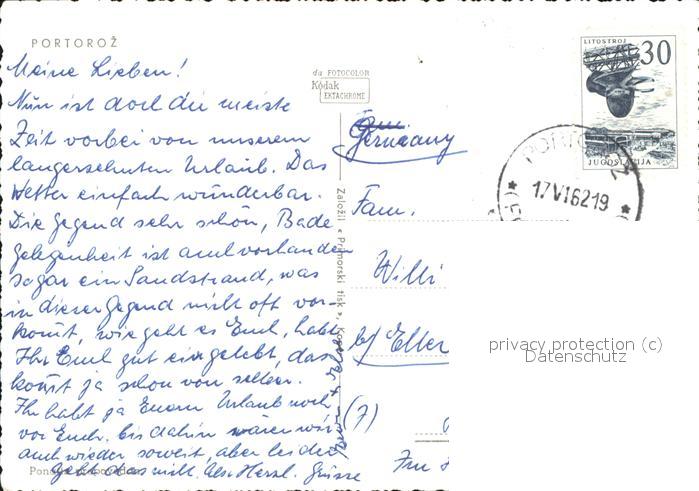 PORTOROŽ
Meine Lieben!
Nun ist doch die meiste
Zeit vorbei von unserem
langersehnten Urlaub. Das
Wetter einfach wunderbar.
Die Gegend sehr schön, Bade
gelegenheit ist auch vorhanden
sogar ein Sandstrand, was
in dieser Gegend nicht oft vor-
kommt, wie geht es Euch, habt
Ihr Euch gut eingelebt, das
kommt ja schon von selber.
Ihr habt ja Euern Urlaub noch
vor Euch. bis dahin waren wir
auch wieder soweit, aber leider
geht das nicht. Also Herzl. Grüsse
da FOTOCOLOR
Kodak
EKTACHROME
Založil « Primorski tisk »,
LITOSTROJ
30
JUGOSLAVIJA
17VI6219
Germany
Fam.
Willi
b/ Eller
(7)
privacy protection (c)
Datenschutz